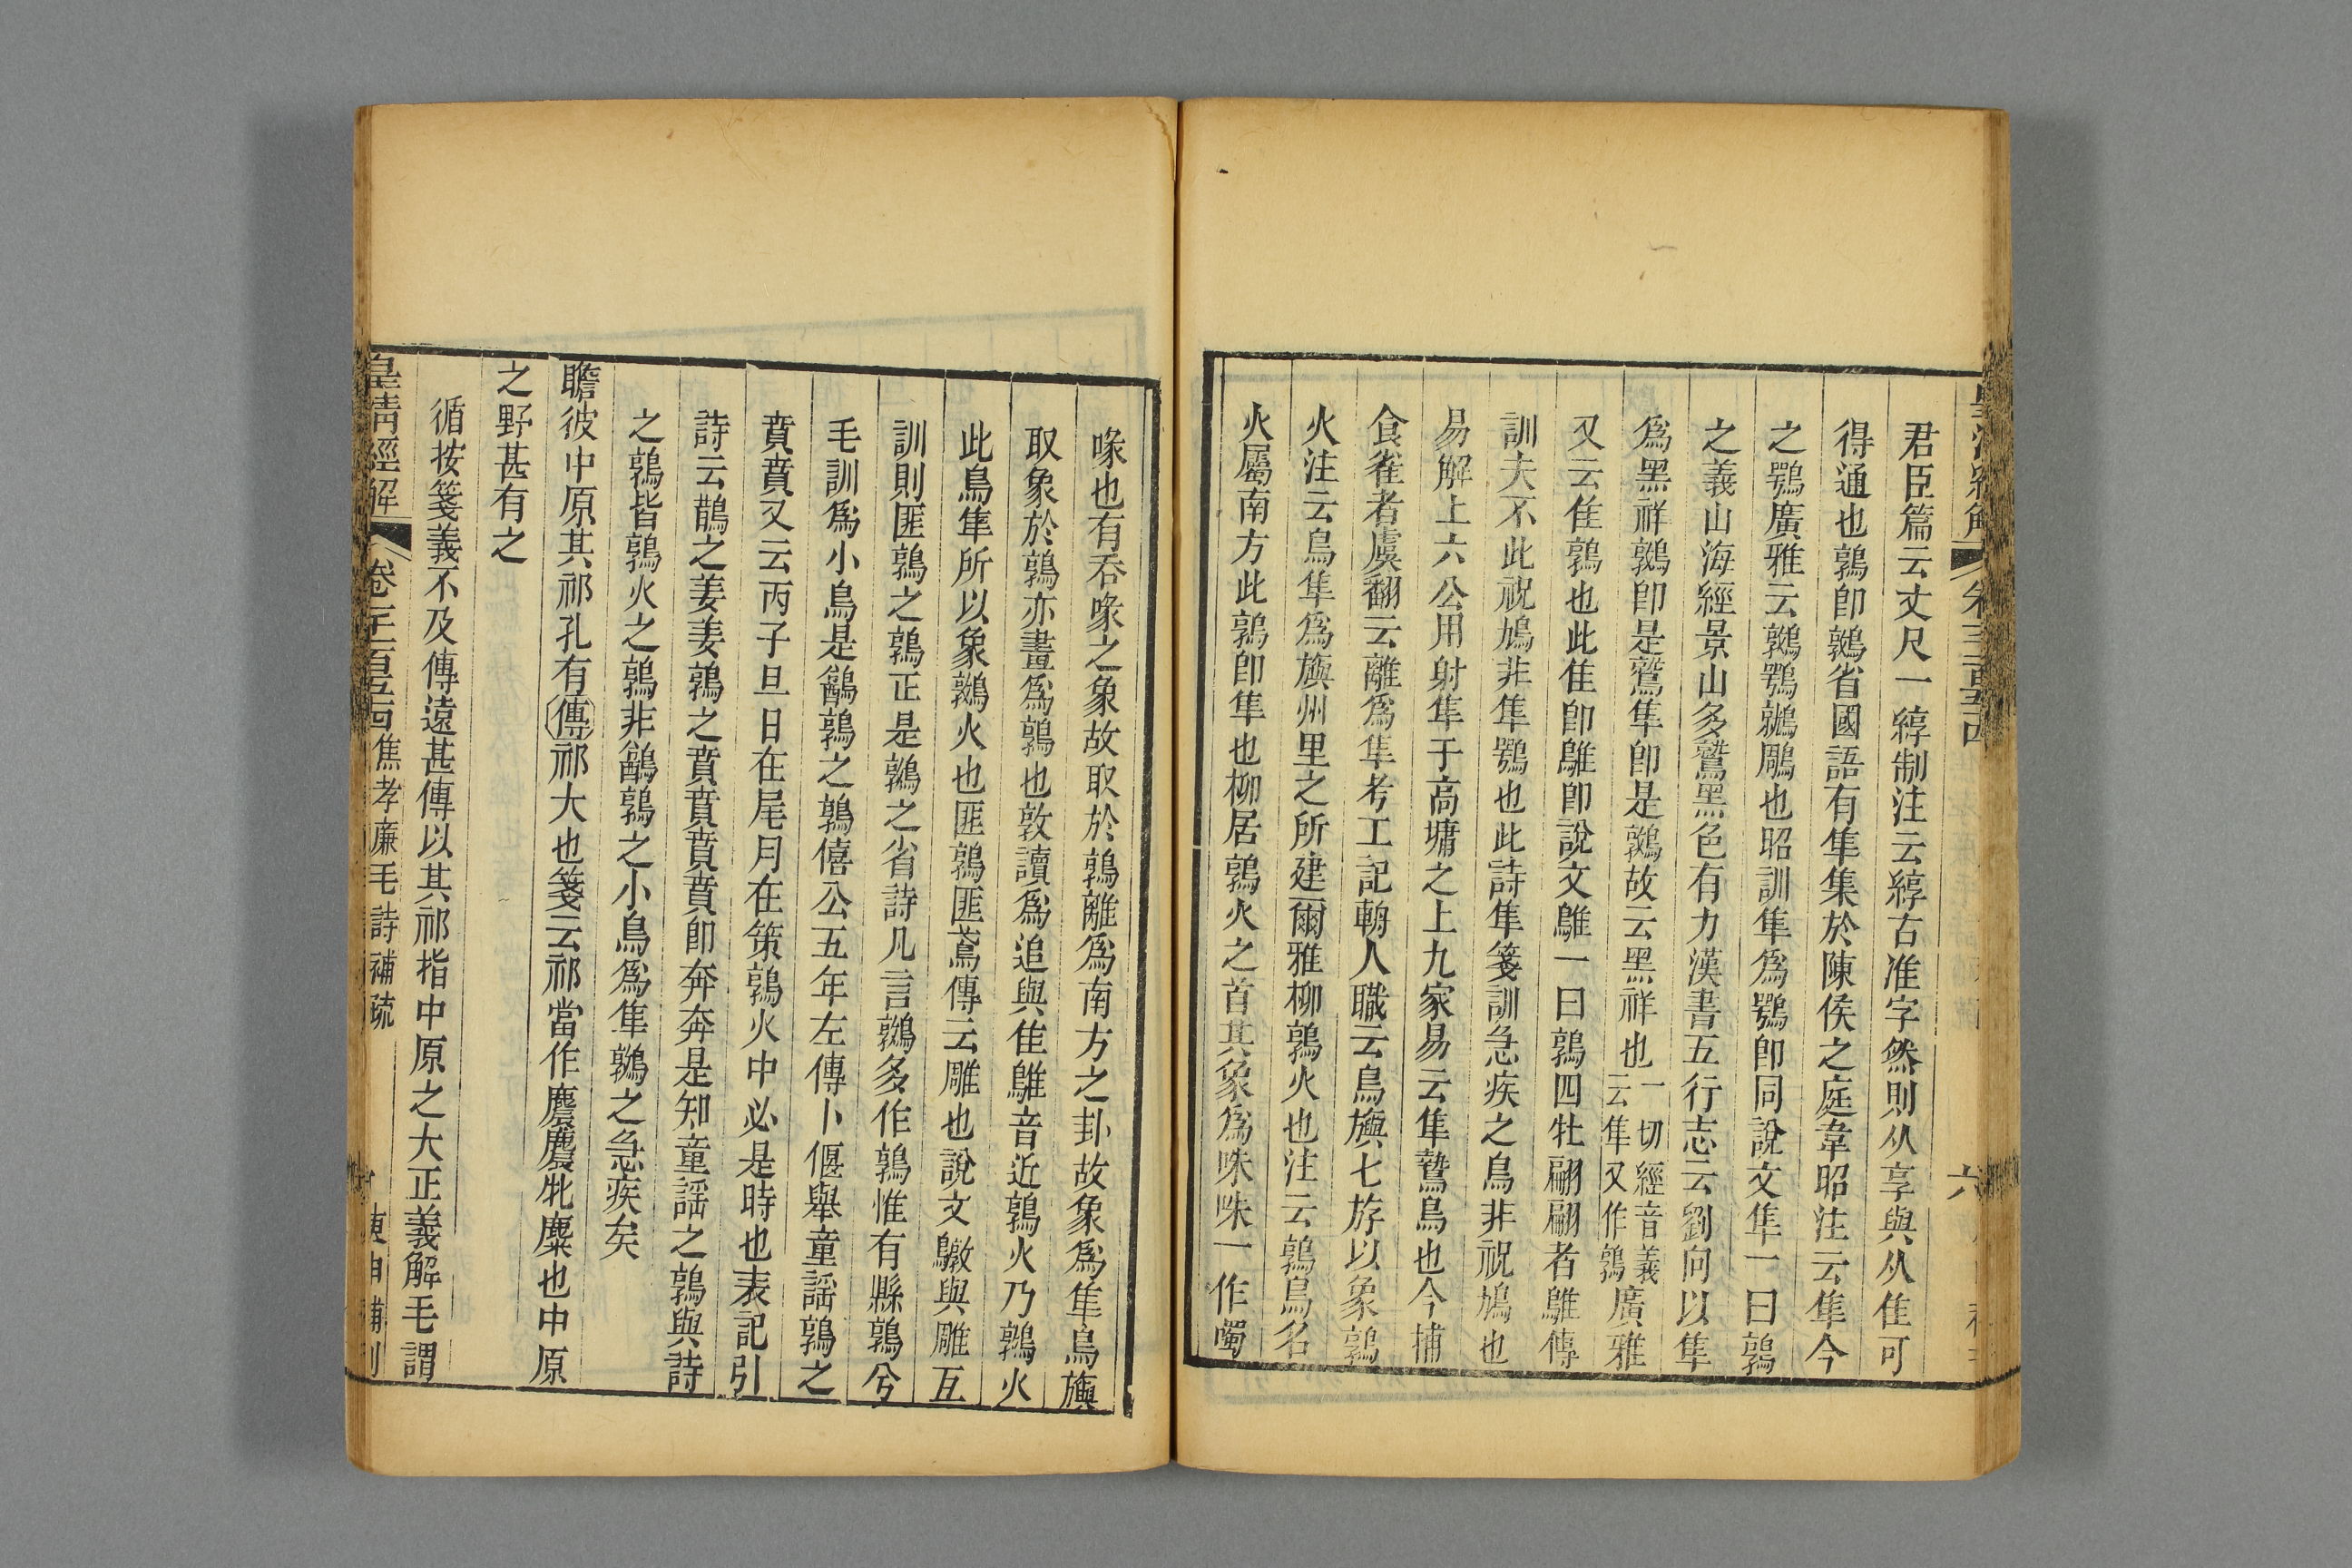 君臣篇云丈尺一綧制注云綧古准字然則从享與从隹可
得通也鶉卽鷻省國語有隼集於陳侯之庭韋昭注云隼今
之鶚廣雅云鷻鶚鷲鵰也昭訓隼爲鶚卽同說文隼一曰鶉
之義山海經景山多鷲黑色有力漢書五行志云劉向以隼
爲黑祥鷻卽是鷲隼卽是鷻故云黑祥也
一切經音義
云隼又作鶉
廣雅
又云隹鶉也此隹卽鵻卽說文鵻一曰鶉四牡翩翩者鵻傳
訓夫不此祝鳩非隼鶚也此詩隼箋訓急疾之鳥非祝鳩也
易解上六公用射隼于高墉之上九家易云隼鷙鳥也今捕
食雀者虞翻云離爲隼考工記輈人職云鳥旟七斿以象鶉
火注云鳥隼爲旟州里之所建爾雅柳鶉火也注云鶉鳥名
火屬南方此鶉卽隼也柳居鶉火之首其象爲咮咮一作噣
喙也有吞喙之象故取於鶉離爲南方之卦故象爲隼鳥旟
取象於鶉亦畫爲鶉也敦讀爲追與隹鵻音近鶉火乃鶉火
此鳥隼所以象鷻火也匪鶉匪鳶傳云雕也說文鷻與雕互
訓則匪鶉之鶉正是鷻之省詩凡言鷻多作鶉惟有縣鶉兮
毛訓爲小鳥是鶕鶉之鶉僖公五年左傳卜偃舉童謡鶉之
賁賁又云丙子旦日在尾月在策鶉火中必是時也表記引
詩云鵲之姜姜鶉之賁賁賁賁卽奔奔是知童謡之鶉與詩
之鶉皆鶉火之鶉非鶕鶉之小鳥爲隼鷻之急疾矣
瞻彼中原其祁孔有傳祁大也箋云祁當作麎麎牝麋也中原
之野甚有之
循按箋義不及傳遠甚傳以其祁指中原之大正義解毛謂
皇淸經解 卷 焦孝廉毛詩補疏 庚申補刊